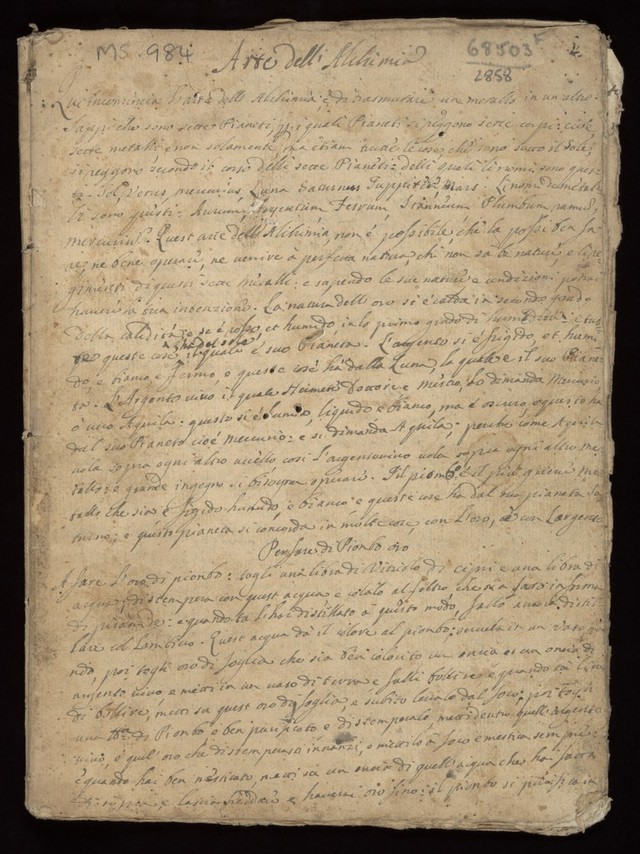 MS. 984
68503
2858
Arte dell' Alchimia
Qui incomincia l'arte dell Alchimia e di trasmutare un metallo in un altro.
Sappi che sono sette Pianeti, p i quali Pianeti si reggono sette corpi: cioè
sette metalli e non solamente, ma etiam tutte le cose che sono sotto il sole,
si reggono secondo il corso delli sette Pianeti: delli quali li nomi sono queste
Sol Venus mercurius Luna Saturnus Juppiter Mars. I nomi de metal
li sono questi: Aurum, Argentum Ferrum, Stanneum Plumbum ramus,
mercurius. Quest arte dell Alchimia, non é possibile, che la possi ben fa
re, ne bene operare, ne venire à perfetta natura chi non sa le nature e li re
gimenti di questi sette metalli: e sapendo le sue nature e condizioni potrai
havere la tua intenzione. La natura dell oro si è calda in secondo grado
della caldità, e se è rosso et humido in lo primo grado di humidità: e tut
te queste cose il quale è suo Pianeta. L'argento si è frigido, et humi
do, e bianco e fermo, e queste cose ha dalla Luna, la quale è il suo Piane
ta. L'Argento vivo, il quale e misto, lo domanda Mercurio
o vero Aquila: questo si è lucido, liquido e bianco, ma è oscuro e questo ha
dal suo Pianeta cioè Mercurio: e si dimanda Aquila: perche come Aquila
vola sopra ogni altro uccello così l'argentovivo vola sopra ogni altro me
tallo: e grande ingegno si bisogna operare. Il piombo è il più grieve me
tallo che sia è frigido humido, è bianco e queste cose ha dal suo pianeta Sa
turno; e questo pianeta si concorda in molte cose, con L'oro, e con Largento
Per fare di Piombo oro
A fare L'oro di piombo: togli una libra di Vitriolo di cipri e una libra di
acqua, distempera con quest acqua e colalo al feltro, che sia fatto in forma
di piramide: e quando tu l'hai distillato à questo modo, fallo anco disti
lare col Lambico. Quest acqua dà il colore al piombo: servala in un vaso
poi togli oro di foglia che sia ben colorito un oncia et un oncia di
argento vivo, e metti in un vaso di terra e falli bollire e quando
di bollire, metti sù quest oro di foglia e subito levalo dal foco; poi togli
una lb. di Piombo e ben purificato e distemperalo metti dentro quell argento
vivo, e quell oro che distemperasti innanzi, e mettilo à foco e mestica sempre:
e quando hai ben mesticato metti sù un oncia di quell acqua che hai fatta
di sopra, e lascia freddare e haverai oro fino: il piombo si purifica in